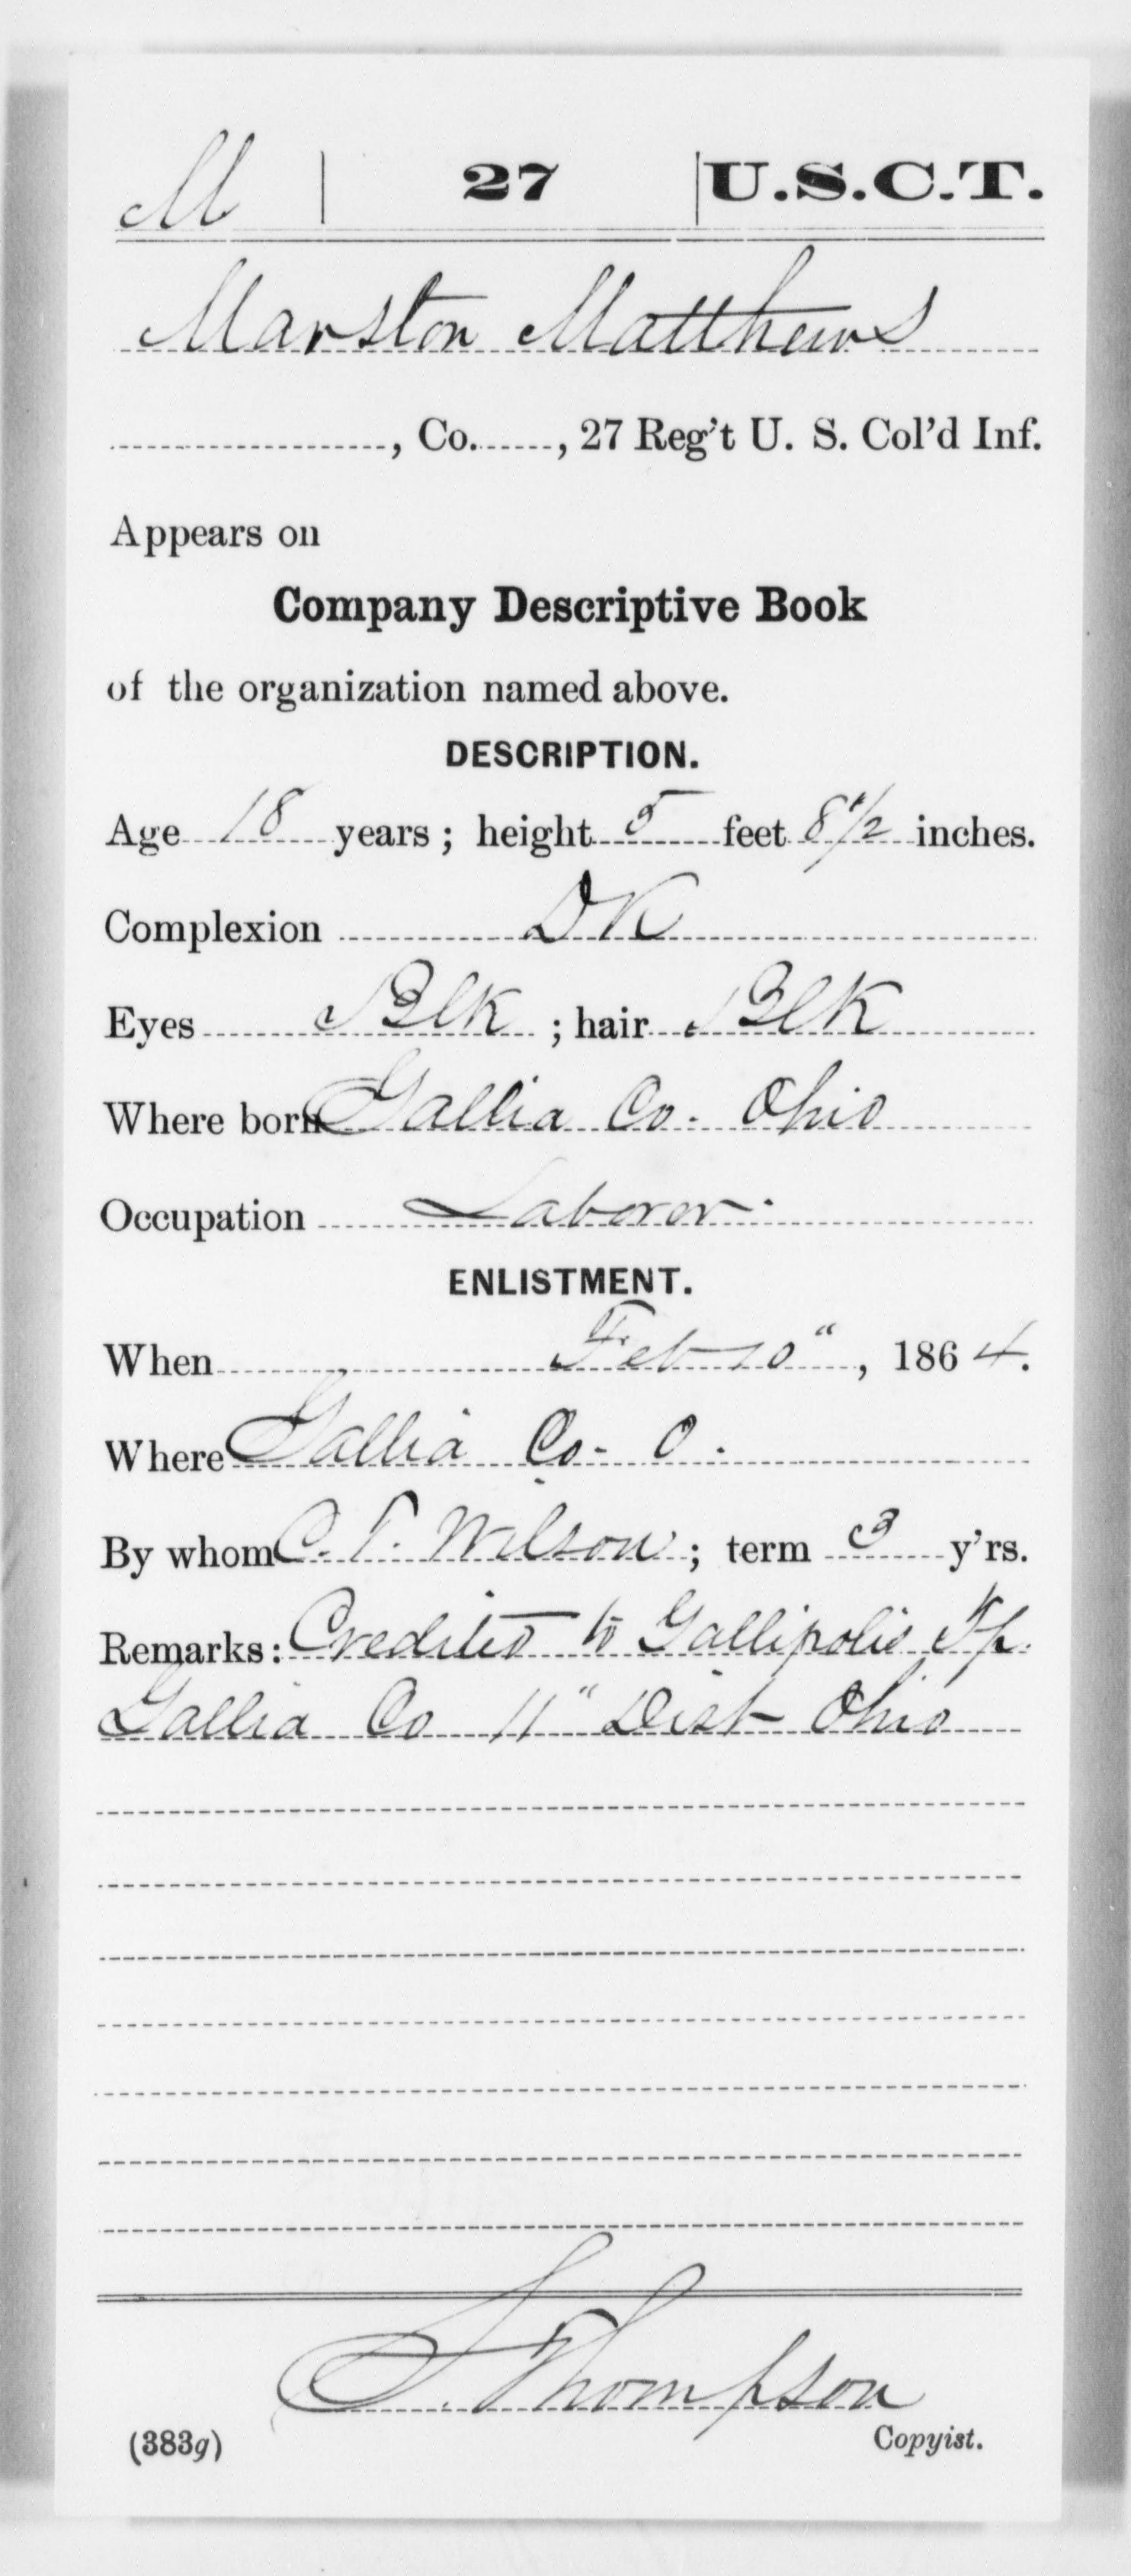 M | 27 | U.S.C.T.
Marston Matthews
, Co. , 27 Reg't U. S. Col'd Inf.
Appears on
Company Descriptive Book
of the organization named above.
DESCRIPTION.
Age 18 years; height 5 feet 8 1/2 inches.
Complexion DK
Eyes Blk ; hair Blk
Where born Gallia Co. Ohio
Occupation Laborer
ENLISTMENT.
When Feb 10", 1864.
Where Gallia Co. O.
By whom C. T. Wilson; term 3 y'rs.
Remarks: Credited to Gallipolis Tp.
Gallia Co 11" Dist Ohio
S. Thompson
(383g) Copyist.